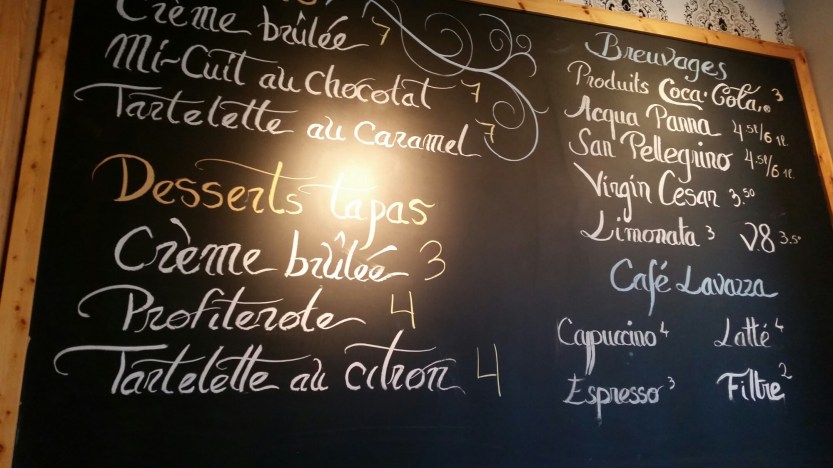 Crème brûlée 7
Mi-Cuit au chocolat 7
Tartelette au caramel 7
Desserts tapas
Crème brûlée 3
Profiterole 4
Tartelette au citron 4
Breuvages
Produits Coca-Cola® 3
Acqua Panna 4.50/6 1L
San Pellegrino 4.50/6 1L
Virgin Cesar 3.50
Limonata 3 V.8 3.50
Café Lavazza
Cappuccino 4 Latté 4
Espresso 3 Filtre 2